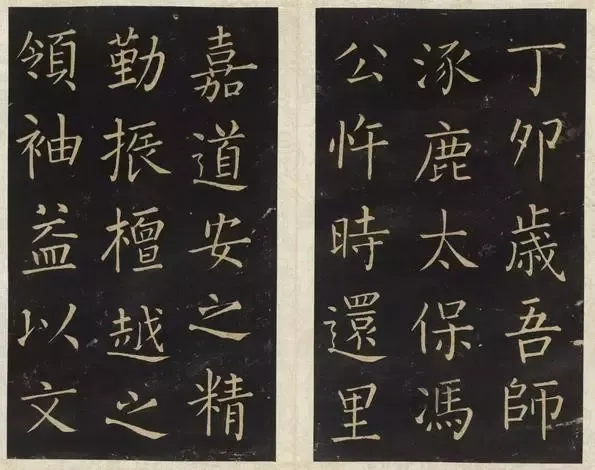 丁卯歲吾師
涿鹿太保馮
公忤時還里
嘉道安之精
勤振檀越之
領袖益以文